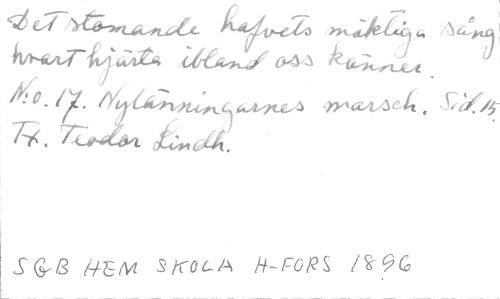 Det stomande hafvets mäktiga sång
hvart hjärta ibland oss känner.
N:o. 17. Nylänningarnes marsch. Sid. 15.
Tx. Teodor Lindh.
SGB HEM SKOLA H-FORS 1896